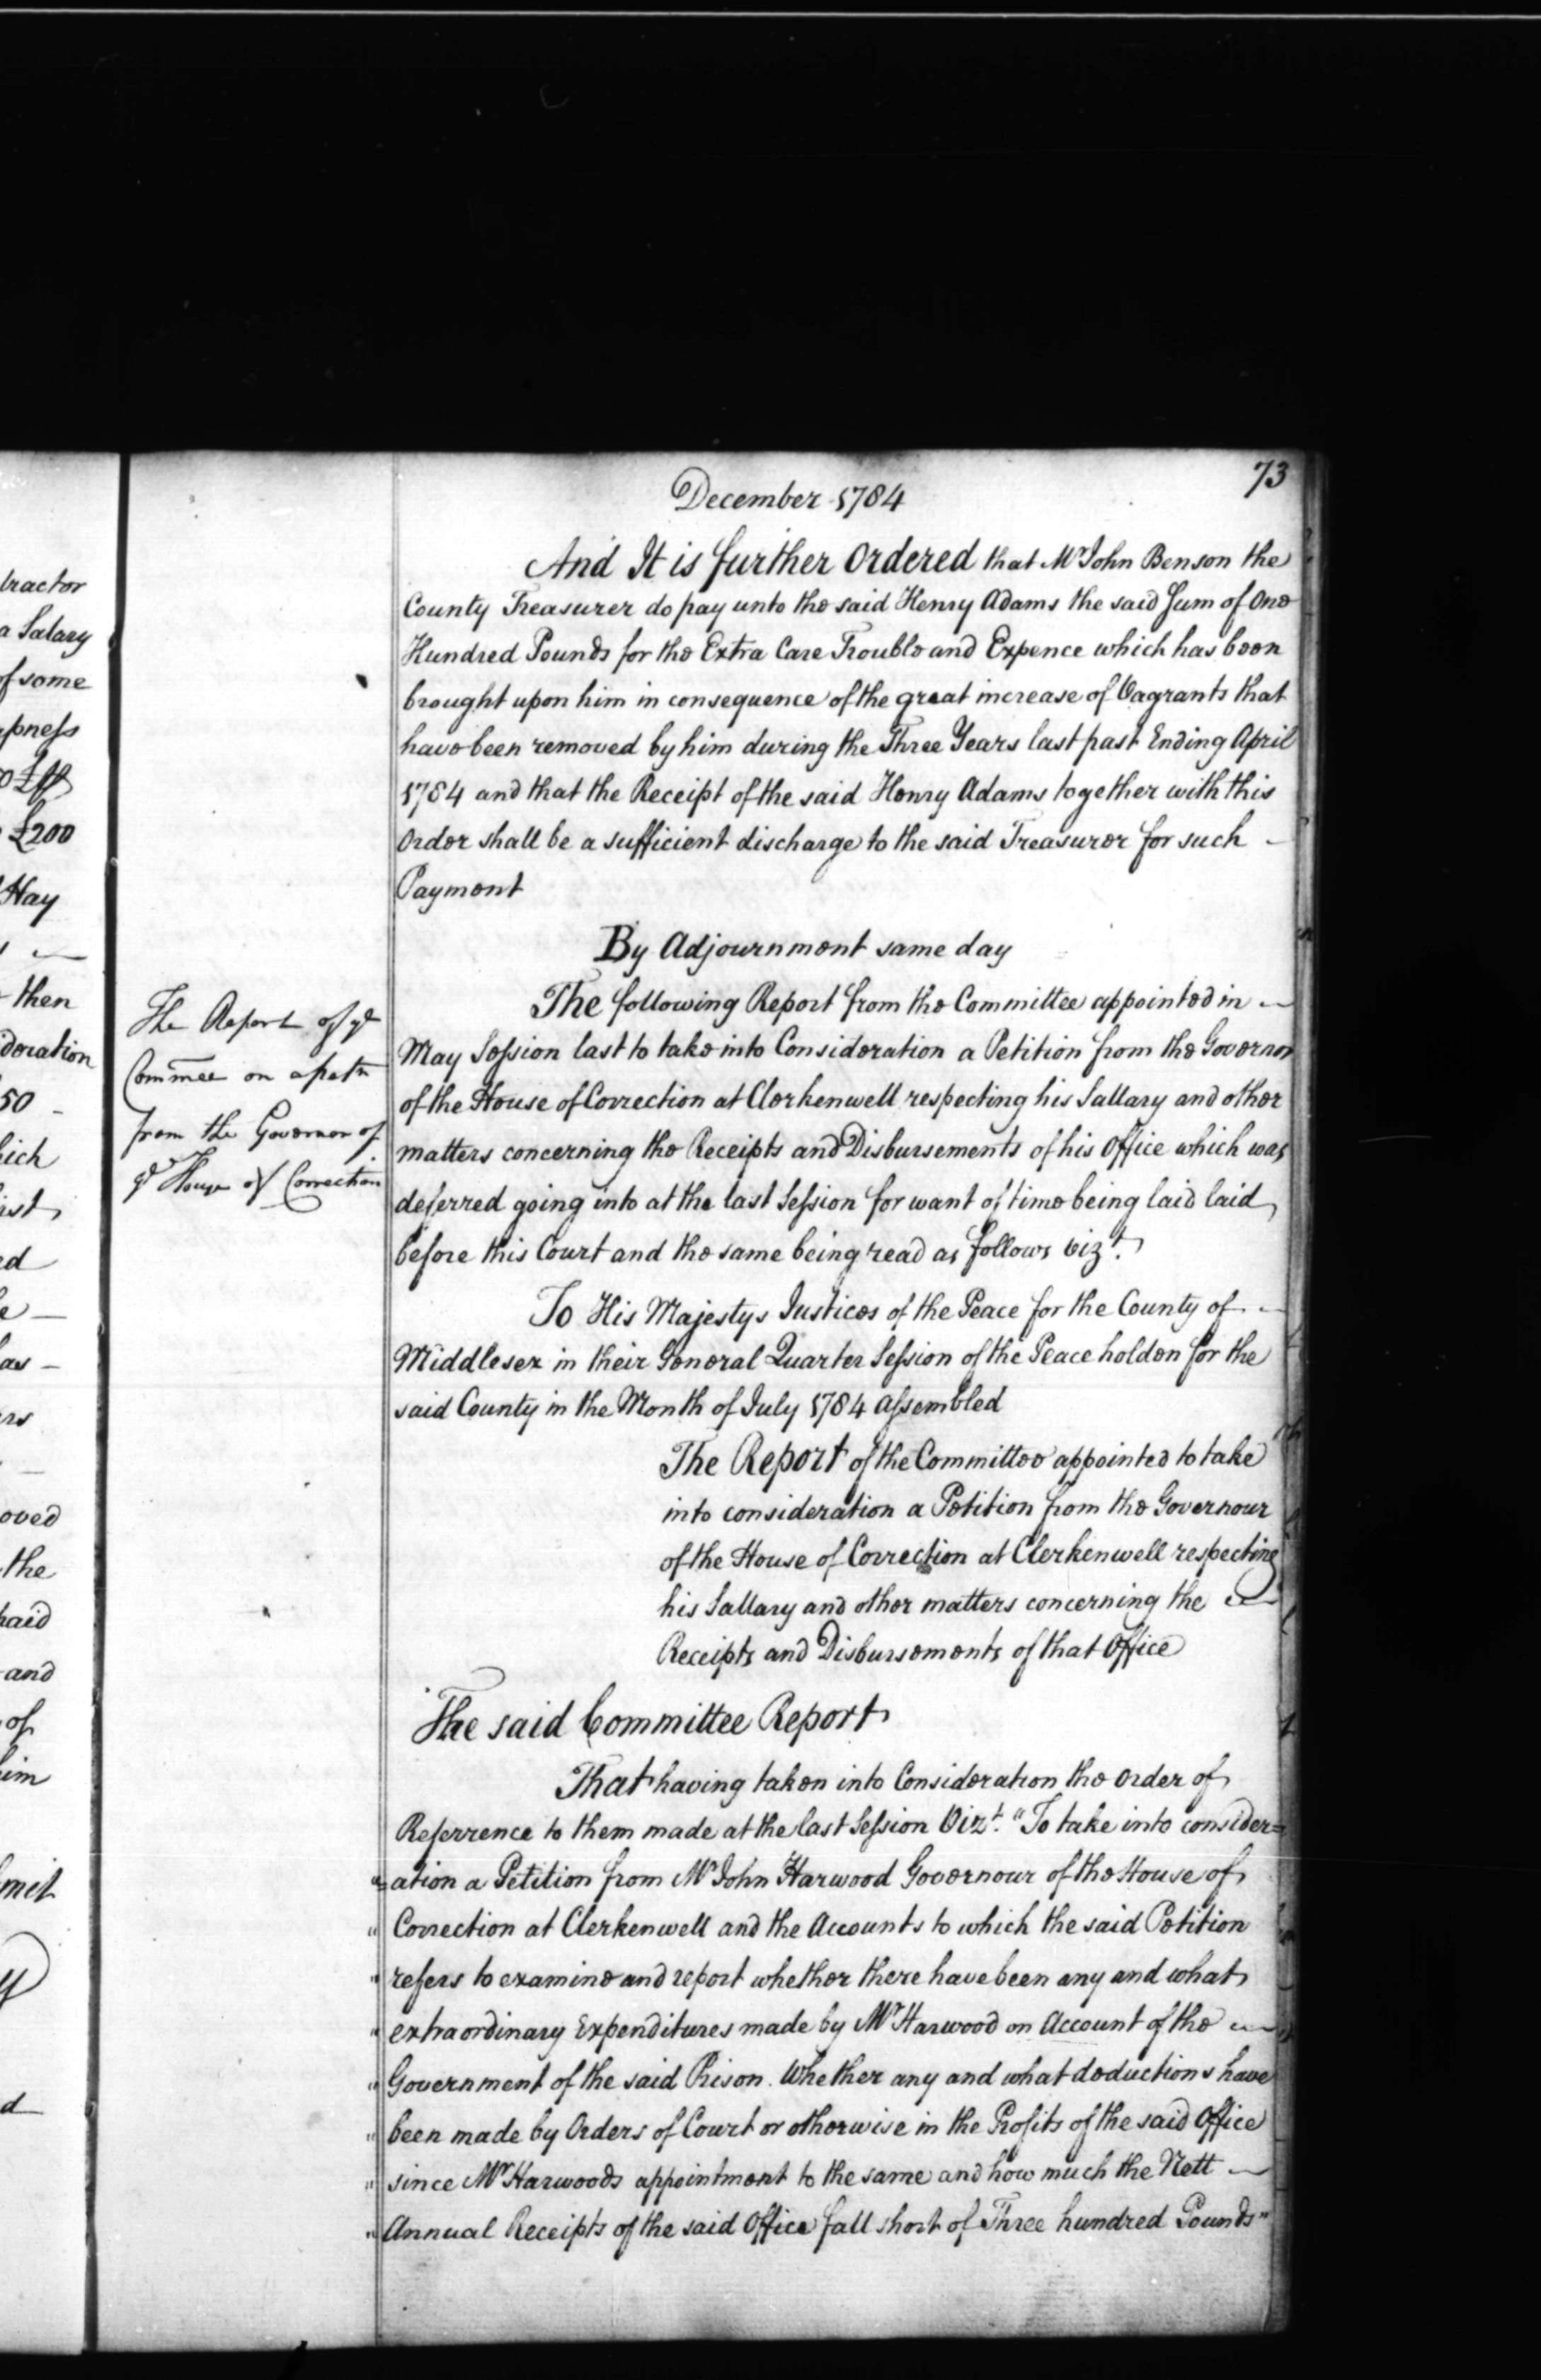 73
December 1784
And It is further Ordered that Mr John Benson the
County Treasurer do pay unto the said Henry Adams the said Sum of One
Hundred Pounds for the Extra Care Trouble and Expence which has been
brought upon him in consequence of the great increase of Vagrants that
have been removed by him during the Three Years last past Ending April
1784 and that the Receipt of the said Henry Adams together with this
Order shall be a sufficient discharge to the said Treasurer for such
Payment
By Adjournment same day
The Report of ye
Commee on a petn
from the Governor of
ye House of Correction
The following Report from the Committee appointed in
May Session last to take into Consideration a Petition from the Governor
of the House of Correction at Clerkenwell respecting his Sallary and other
matters concerning the Receipts and Disbursements of his Office which was
deferred going into at the last Session for want of time being laid laid
before this Court and the same being read as follows vizt.
To His Majestys Justices of the Peace for the County of
Middlesex in their General Quarter Session of the Peace holden for the
said County in the Month of July 1784 assembled
The Report of the Committee appointed to take
into consideration a Petition from the Governour
of the House of Correction at Clerkenwell respecting
his Sallary and other matters concerning the
Receipts and Disbursements of that Office
The said Committee Report
That having taken into Consideration the Order of
Referrence to them made at the last Session Vizt. "To take into consider=
"=ation a Petition from Mr John Harwood Governour of the House of
" Correction at Clerkenwell and the Accounts to which the said Petition
" refers to examine and report whether there have been any and what
" extraordinary Expenditures made by Mr Harwood on Account of the
" Government of the said Prison. Whether any and what deductions have
" been made by Orders of Court or otherwise in the Profits of the said Office
" since Mr Harwoods appointment to the same and how much the Nett
" Annual Receipts of the said Office fall short of Three hundred Pounds"
tractor
a Salary
of some
£200
Hay
then
ideration
50
hich
ed
oved
the
paid
and
of
him
mit